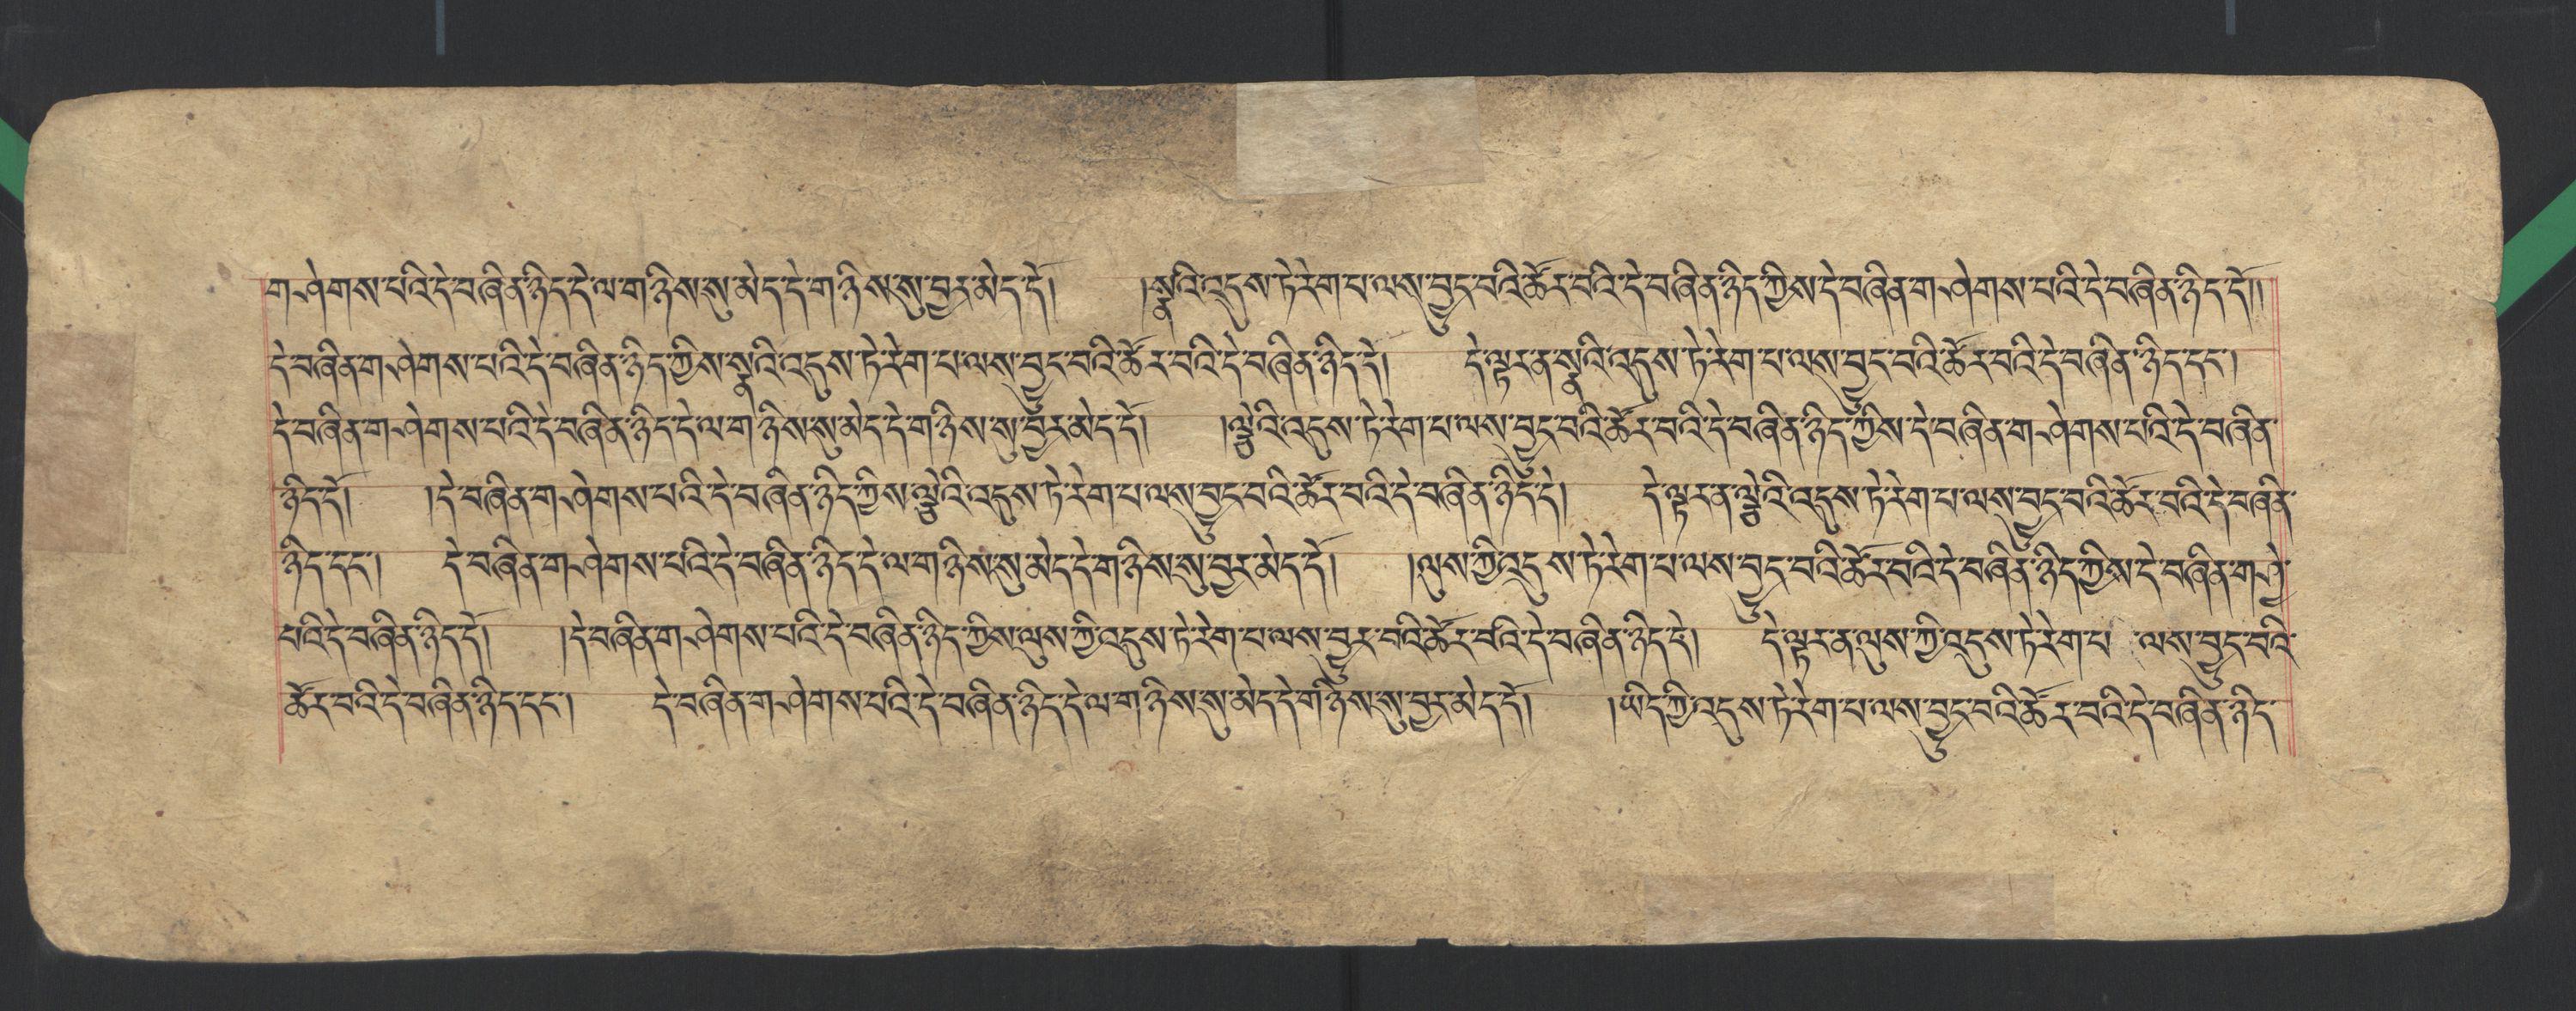 གཤེགས་པའི་དེ་བཞིན་ཉིད་དེ་ལ་གཉིས་སུ་མེད་དེ་གཉིས་སུ་བྱར་མེད་དོ། །སྣའི་འདུས་ཏེ་རེག་པ་ལས་བྱུང་བའི་ཚོར་བའི་དེ་བཞིན་ཉིད་ཀྱིས་དེ་བཞིན་གཤེགས་པའི་དེ་བཞིན་ཉིད་དོ།།
དེ་བཞིན་གཤེགས་པའི་དེ་བཞིན་ཉིད་ཀྱིས་སྣའི་འདུས་ཏེ་རེག་པ་ལས་བྱུང་བའི་ཚོར་བའི་དེ་བཞིན་ཉིད་དེ། དེ་ལྟར་ན་སྣའི་འདུས་ཏེ་རེག་པ་ལས་བྱུང་བའི་ཚོར་བའི་དེ་བཞིན་ཉིད་དང་།
དེ་བཞིན་གཤེགས་པའི་དེ་བཞིན་ཉིད་དེ་ལ་གཉིས་སུ་མེད་དེ་གཉིས་སུ་བྱར་མེད་དོ། །ལྕེའི་འདུས་ཏེ་རེག་པ་ལས་བྱུང་བའི་ཚོར་བའི་དེ་བཞིན་ཉིད་ཀྱིས་དེ་བཞིན་གཤེགས་པའི་དེ་བཞིན་
ཉིད་དོ། །དེ་བཞིན་གཤེགས་པའི་དེ་བཞིན་ཉིད་ཀྱིས་ལྕེའི་འདུས་ཏེ་རེག་པ་ལས་བྱུང་བའི་ཚོར་བའི་དེ་བཞིན་ཉིད་དེ། དེ་ལྟར་ན་ལྕེའི་འདུས་ཏེ་རེག་པ་ལས་བྱུང་བའི་ཚོར་བའི་དེ་བཞིན་
ཉིད་དང་། དེ་བཞིན་གཤེགས་པའི་དེ་བཞིན་ཉིད་དེ་ལ་གཉིས་སུ་མེད་དེ་གཉིས་སུ་བྱར་མེད་དོ། །ལུས་ཀྱི་འདུས་ཏེ་རེག་པ་ལས་བྱུང་བའི་ཚོར་བའི་དེ་བཞིན་ཉིད་ཀྱིས་དེ་བཞིན་གཤེ
པའི་དེ་བཞིན་ཉིད་དོ། །དེ་བཞིན་གཤེགས་པའི་དེ་བཞིན་ཉིད་ཀྱིས་ལུས་ཀྱི་འདུས་ཏེ་རེག་པ་ལས་བྱུང་བའི་ཚོར་བའི་དེ་བཞིན་ཉིད་དེ། དེ་ལྟར་ན་ལུས་ཀྱི་འདུས་ཏེ་རེག་པ་ལས་བྱུང་བའི་
ཚོར་བའི་དེ་བཞིན་ཉིད་དང་། དེ་བཞིན་གཤེགས་པའི་དེ་བཞིན་ཉིད་དེ་ལ་གཉིས་སུ་མེད་དེ་གཉིས་སུ་བྱར་མེད་དོ། །ཡིད་ཀྱི་འདུས་ཏེ་རེག་པ་ལས་བྱུང་བའི་ཚོར་བའི་དེ་བཞིན་ཉིད་